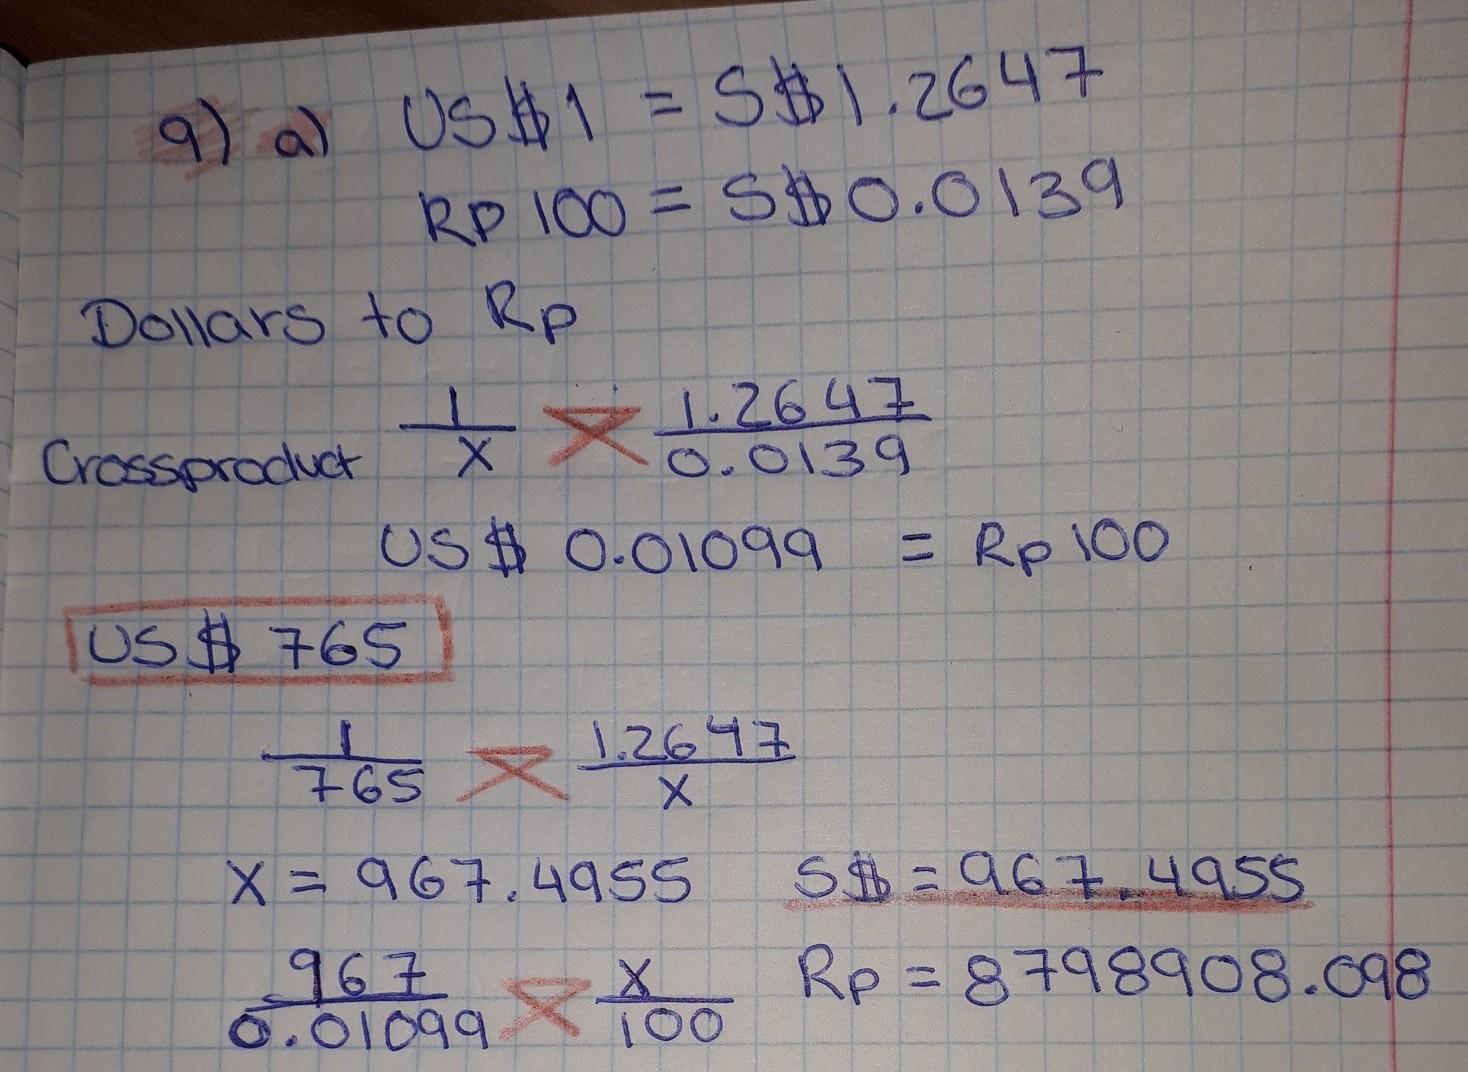 9) a) US$1 = S$1.2647
RP 100 = S$0.0139
Dollars to Rp
Crossproduct 1/x 1.2647/0.0139
US$ 0.01099 = Rp 100
US$ 765
1/765 1.2647/x
x = 967.4955 S$ = 967.4955
967/0.01099 x/100 Rp = 8798908.098